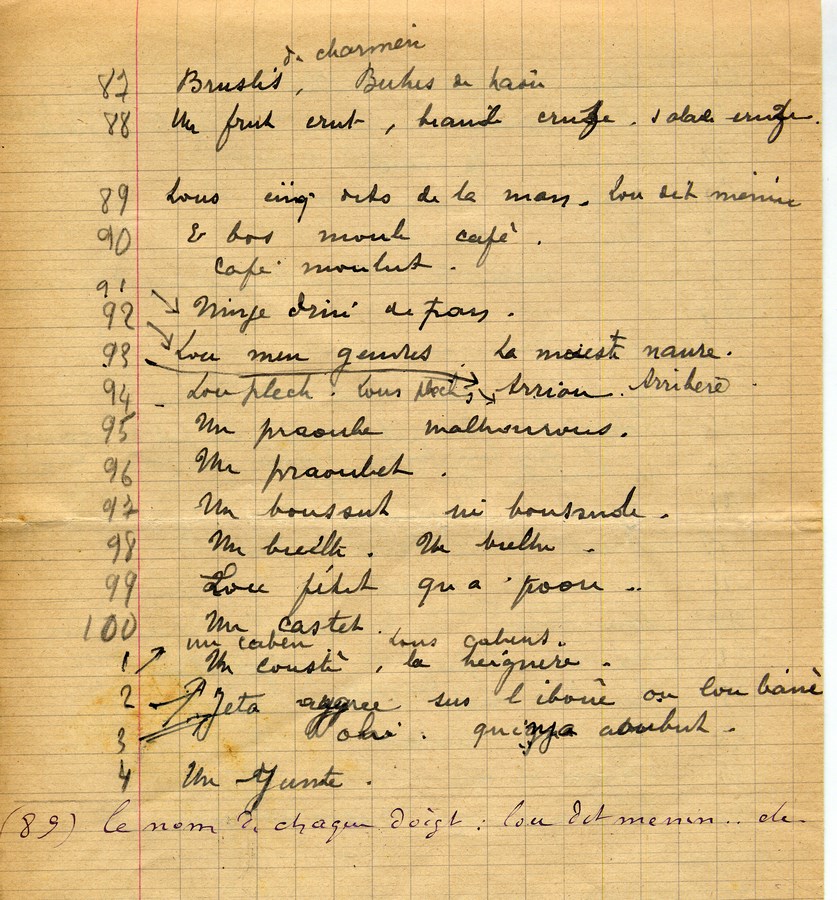 de charmeri
87 Bruslis, Buhes de haoü
88 Un frut crut, biande cruze. salade cruze.
89 Lous cinq dits de la man. Lou dit menin
90 E bos moule café.
café moulut.
91
92 Minje drin de pan.
93 Lou men gendres. La naure.
94 Lou plech. Lous plechs, Arriou. Arribere
95 Un praoube malhourous.
96 Un praoubet.
97 Un boussut ue boussude.
98 Un bielh. Ue bielhe.
99 Lou pétit qu'a poou..
100 Un castet.
un caben lous cabens.
1 Un coustè, la heignere.
2 Jeta aygue sus l'iboue ou lou
3 olui. quinya abubut.
4 Un Junte.
(89) le nom de chaque doigt : lou dit menin.. de-